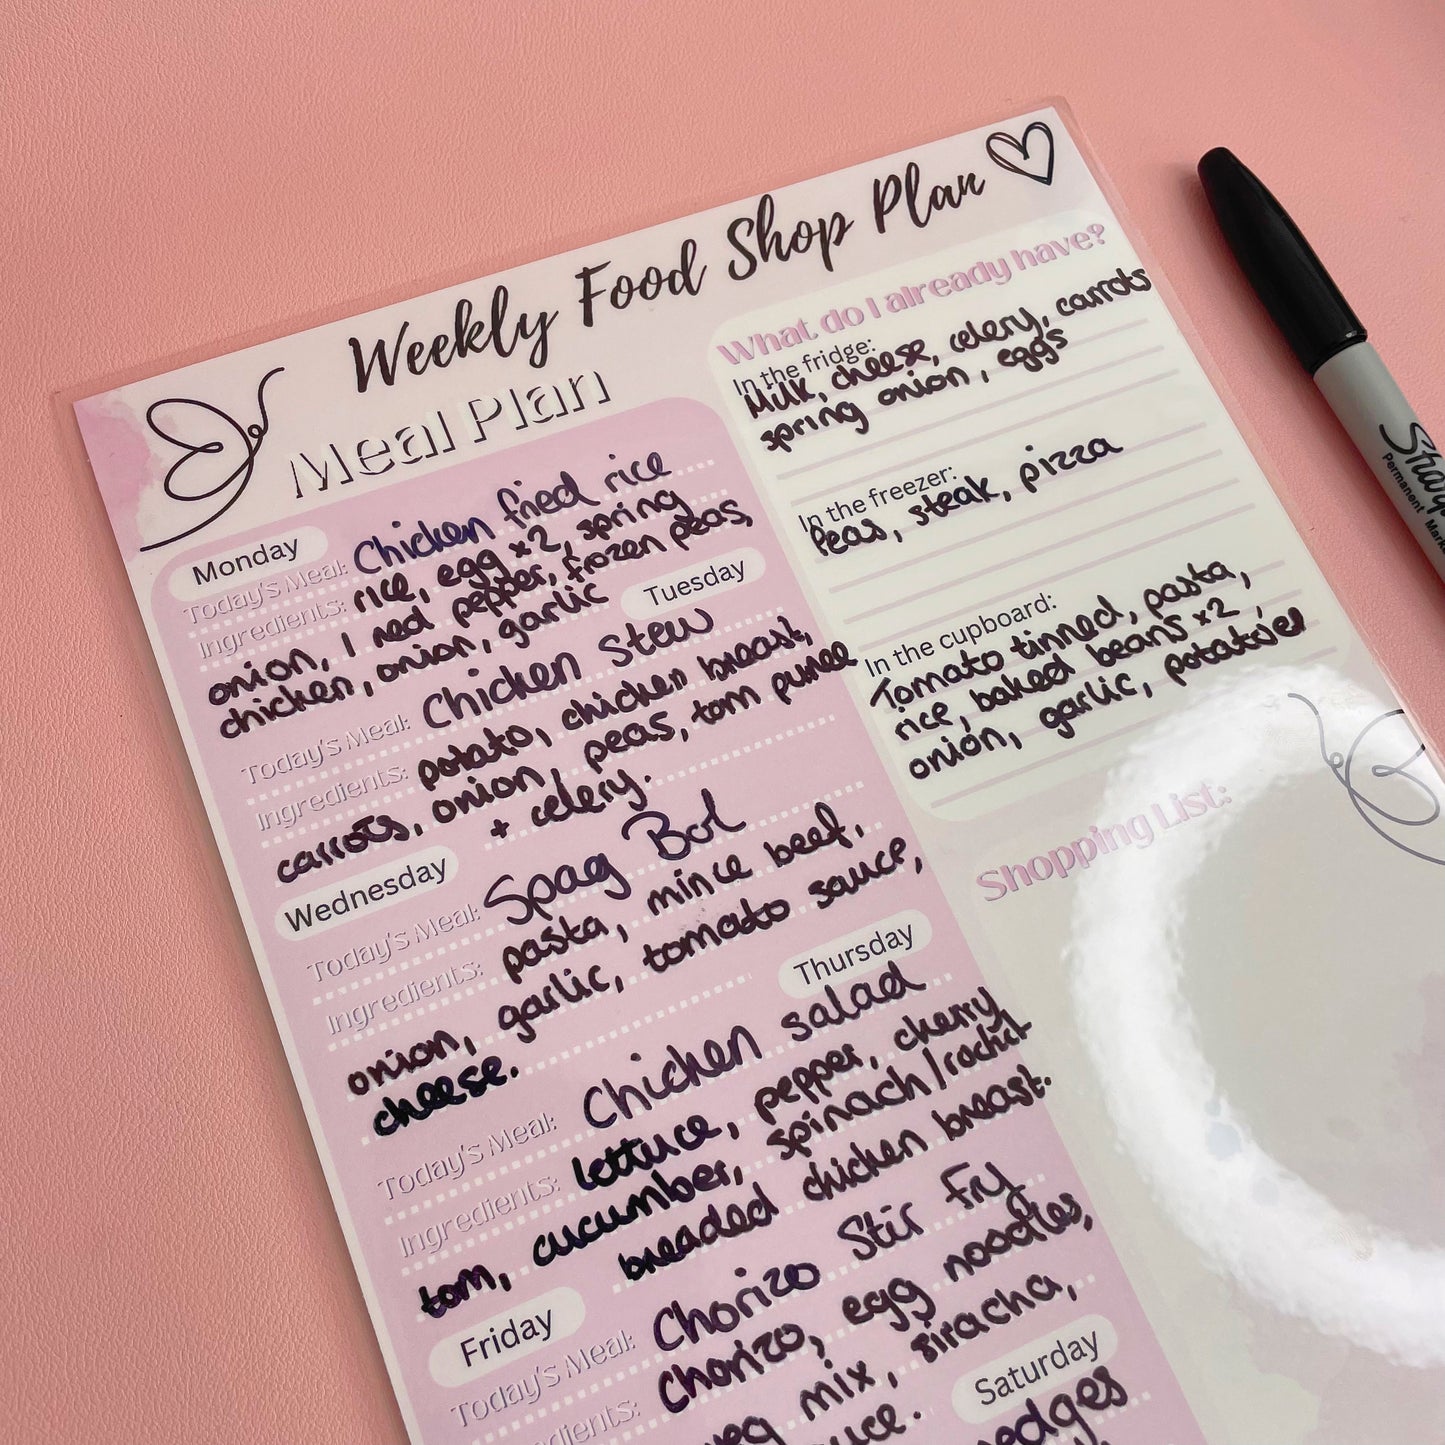 Weekly Food Shop Plan
Meal Plan
Monday
Today's Meal: Chicken fried rice
Ingredients: rice, egg x2, spring
onion, 1 red pepper, frozen peas,
chicken, onion, garlic
Tuesday
Today's Meal: Chicken Stew
Ingredients: potato, chicken breast,
carrots, onion, peas, tom puree
+ celery.
Wednesday
Today's Meal: Spag Bol
Ingredients: pasta, mince beef,
onion, garlic, tomato sauce,
cheese.
Thursday
Today's Meal: Chicken salad
Ingredients: lettuce, pepper, cherry
tom, cucumber, spinach/rocket
breaded chicken breast.
Friday
Today's Meal: Chorizo Stir Fry
Chorizo, egg noodles,
veg mix, siracha,
Saturday
What do I already have?
In the fridge:
Milk, cheese, celery, carrots
spring onion, eggs
In the freezer:
Peas, steak, pizza
In the cupboard:
Tomato tinned, pasta,
rice, baked beans x2,
onion, garlic, potatoes
Shopping List:
Sharp
Permanent Marke